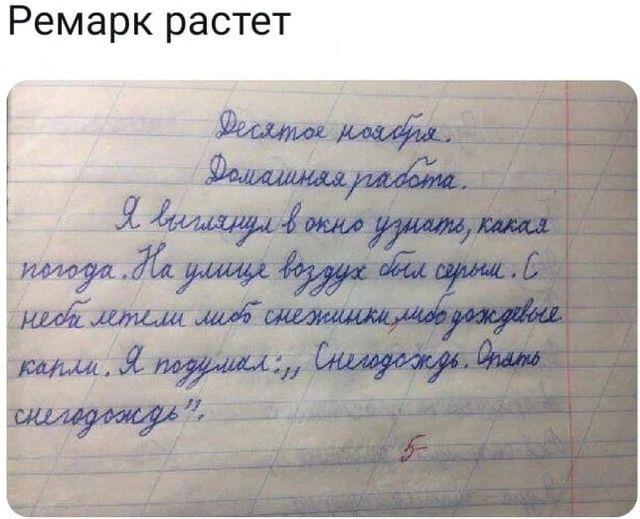 Ремарк растет
Десятое ноября.
Домашняя работа.
Я выглянул в окно узнать, какая
погода. На улице воздух был серым. С
неба летели либо снежинки, либо дождевые
капли. Я подумал: „ Снегодождь. Опять
снегодождь".
5-